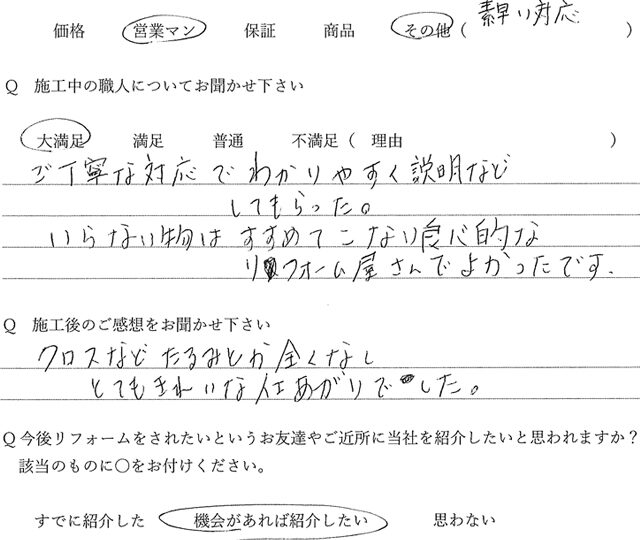 素早い対応
価格 営業マン 保証 商品 その他( )
Q 施工中の職人についてお聞かせ下さい
大満足 満足 普通 不満足( 理由 )
ご丁寧な対応でわかりやすく説明など
してもらった。
いらない物はすすめてこない良心的な
リフォーム屋さんでよかったです.
Q 施工後のご感想をお聞かせ下さい
クロスなどたるみとか全くなし
とてもきれいな仕あがりでした。
Q 今後リフォームをされたいというお友達やご近所に当社を紹介したいと思われますか?
該当のものに○をお付けください。
すでに紹介した 機会があれば紹介したい 思わない